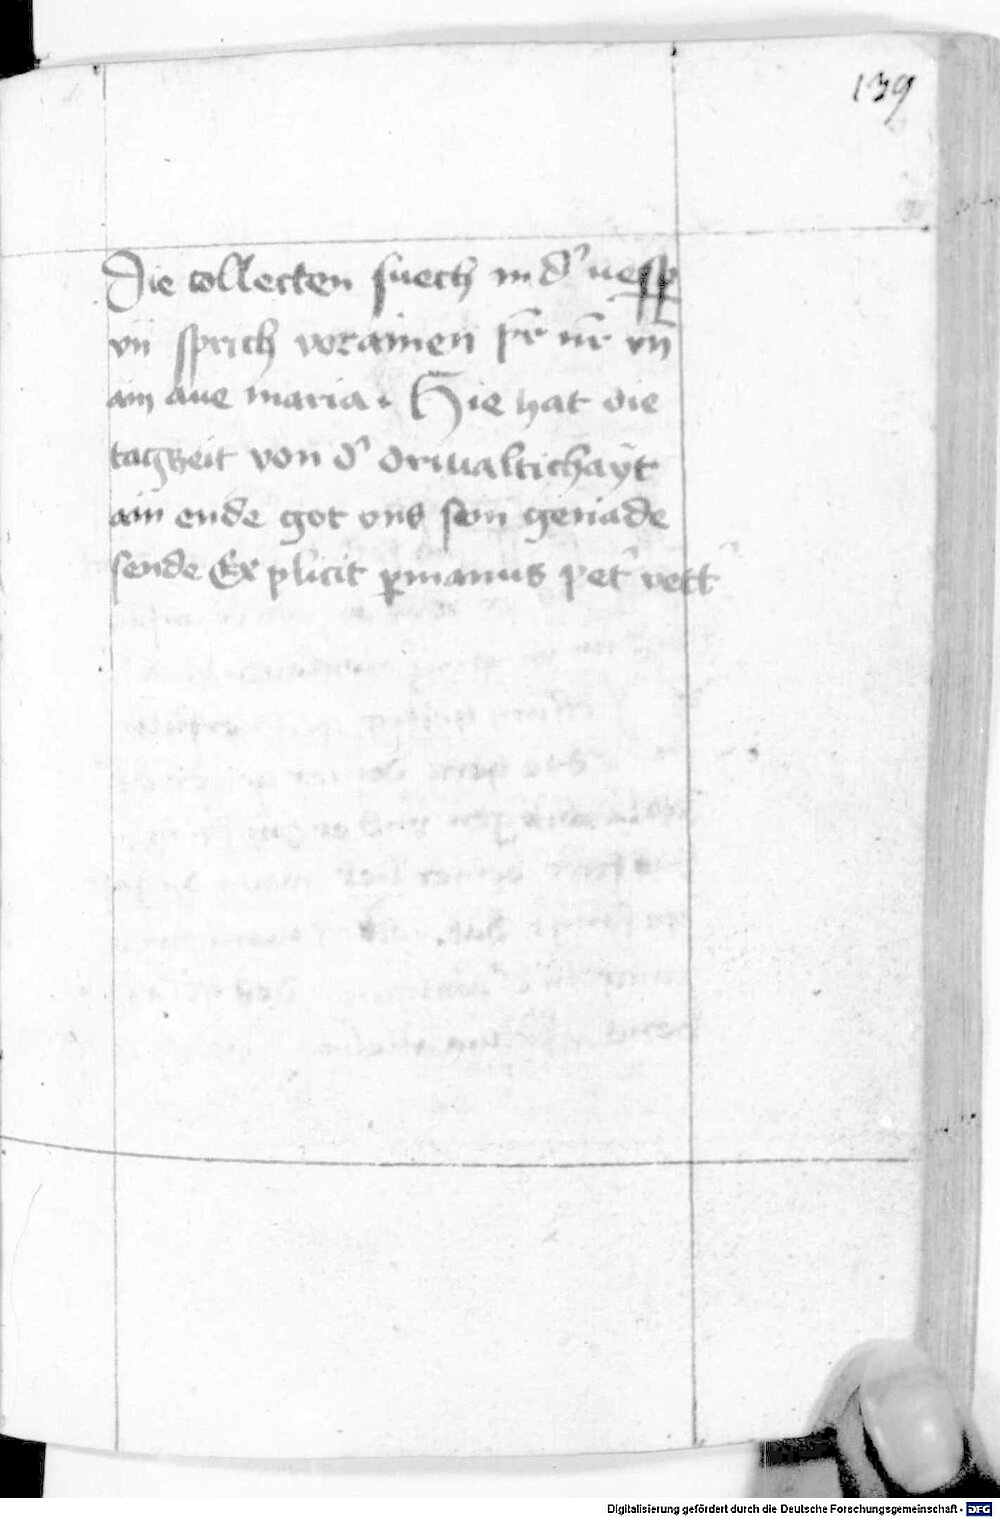 139
Die collecten suech in d' vesꝑ
vn̄ sprich vor ainen pr̄ nr̄ vn̄
ain aue maria · Hie hat die
tagzeit von d' driualtichaÿt
ain ende got vns sein genade
sende Explicit ꝑ manus pet'
Digitalisierung gefördert durch die Deutsche Forschungsgemeinschaft - DFG